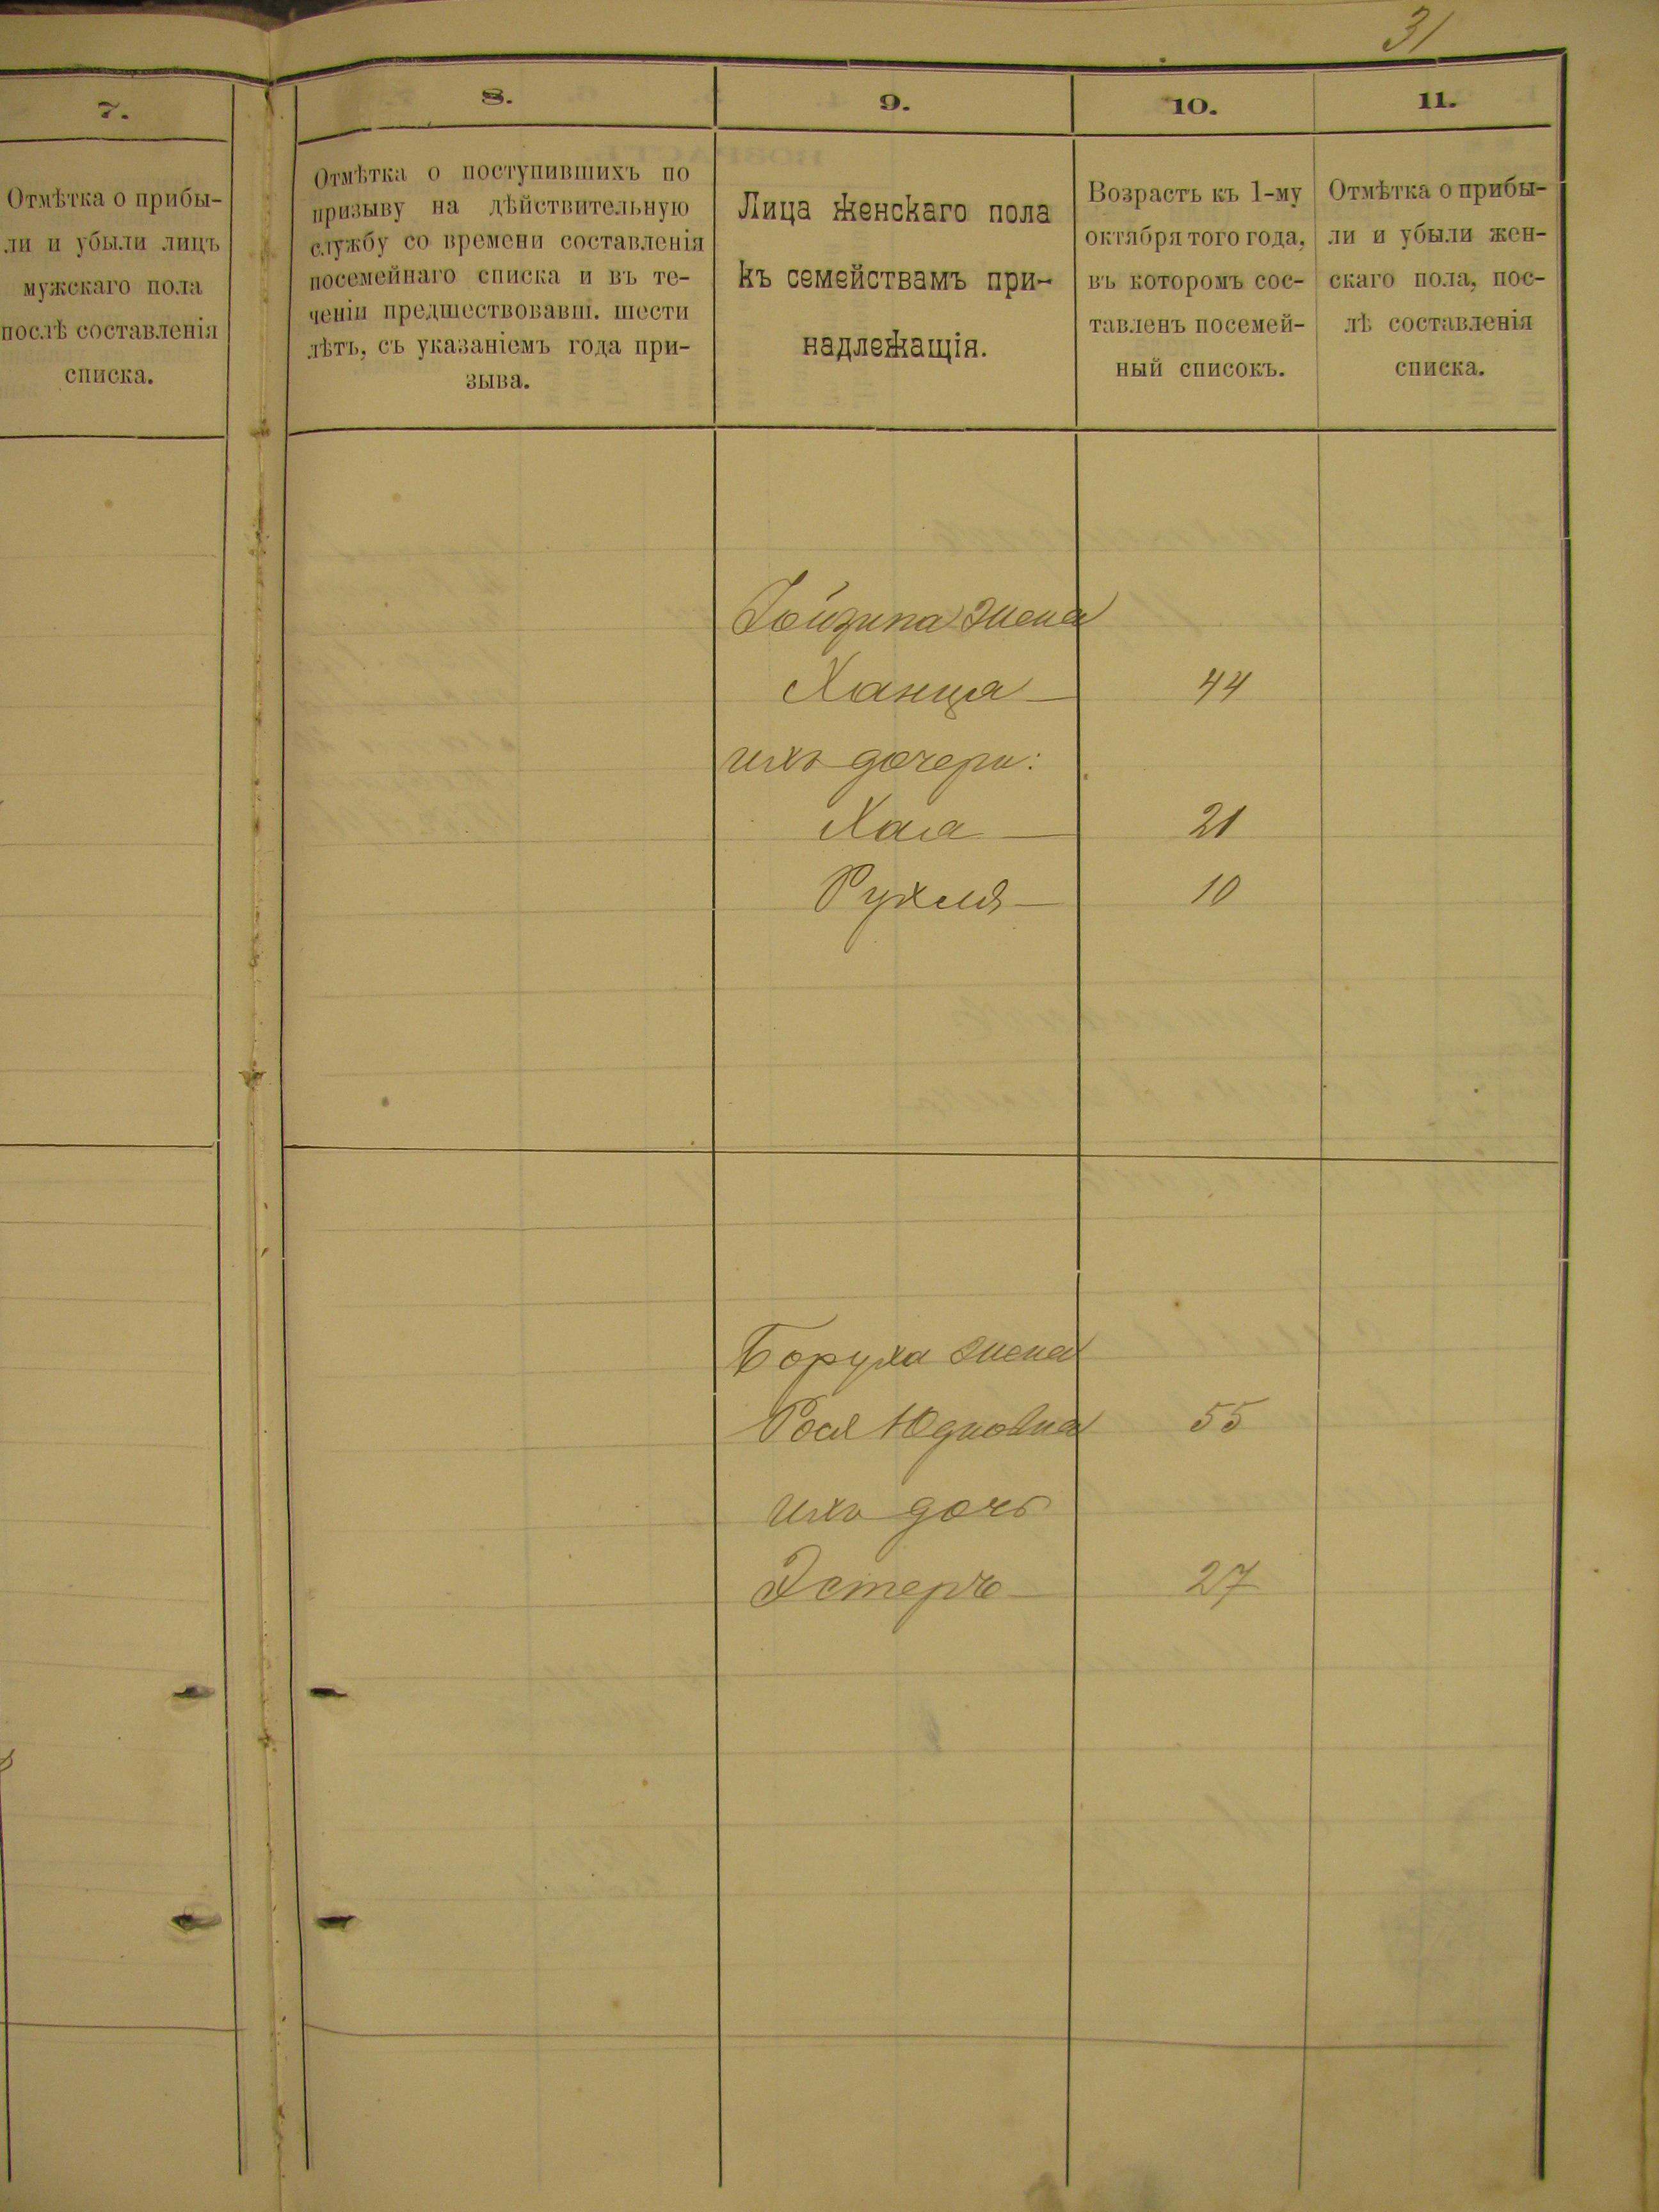 31
7.
Отмѣтка о прибы-
ли и убыли лицъ
мужскаго пола
послѣ составленія
списка.
8.
Отмѣтка о поступившихъ по
призыву на дѣйствительную
службу со времени составленія
посемейнаго списка и въ те-
ченіи предшествовавш. шести
лѣтъ, съ указаніемъ года при-
зыва.
9.
Лица женскаго пола
къ семействамъ при-
надлежащія.
10.
Возрастъ къ 1-му
октября того года,
въ которомъ сос-
тавленъ посемей-
ный списокъ.
11.
Отмѣтка о прибы-
ли и убыли жен-
скаго пола, пос-
лѣ составленія
списка.
жена
Ханця — 44
ихъ дочери:
Хая — 21
Рухля — 10
Боруха жена
Рося Юдковна 55
ихъ дочь
Эстеръ — 27